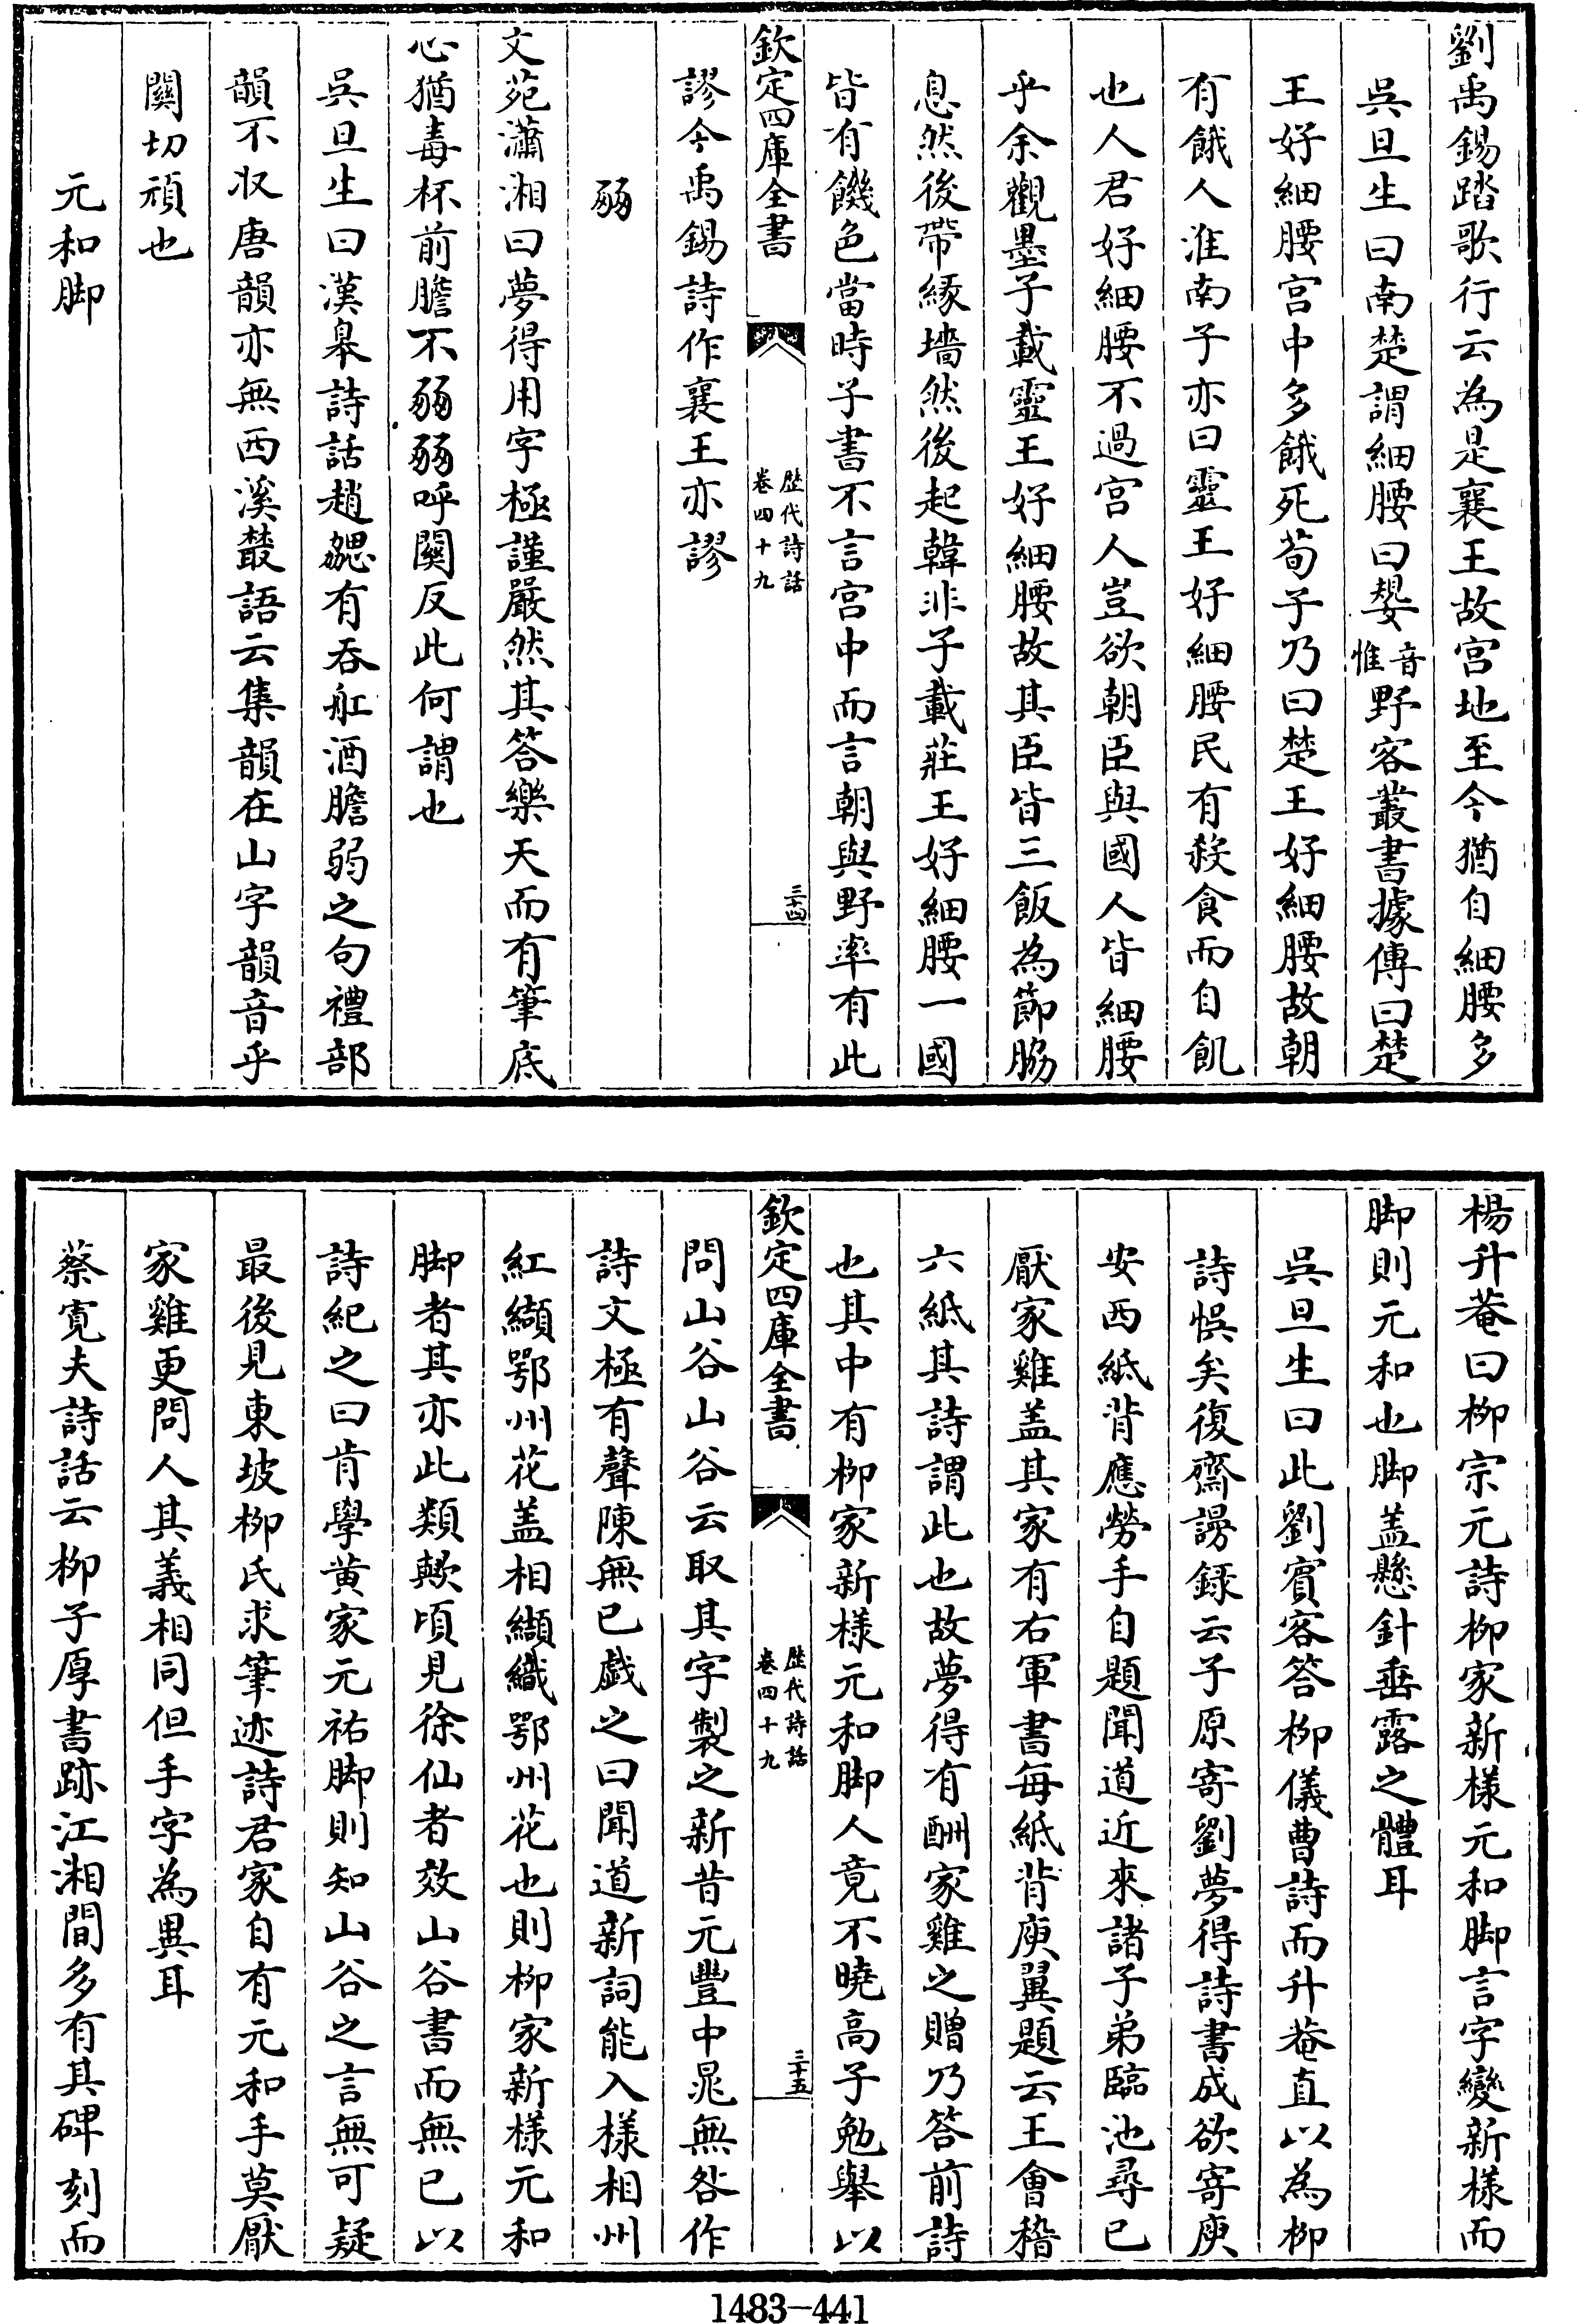 劉禹錫踏歌行云為是襄王故宫地至今猶自細腰多
吳旦生曰南楚謂細腰曰嫢音惟野客叢書據傳曰楚
王好細腰宫中多餓死荀子乃曰楚王好細腰故朝
有餓人淮南子亦曰靈王好細腰民有殺食而自飢
也人君好細腰不過宫人豈欲朝臣與國人皆細腰
乎余觀墨子載靈王好細腰故其臣皆三飯為節脇
息然後帶緣墻然後起韓非子載莊王好細腰一國
皆有饑色當時子書不言宫中而言朝與野率有此
欽定四庫全書
歴代詩話
卷四十九
三十四
謬今禹錫詩作襄王亦謬
㢮
文苑瀟湘曰夢得用字極謹嚴然其答樂天而有筆底
心猶毒杯前膽不㢮㢮呼關反此何謂也
吳旦生曰漢皋詩話趙勰有吞舡酒膽弱之句禮部
韻不收唐韻亦無西溪叢語云集韻在山字韻音乎
關切頑也
元和脚
楊升菴曰柳宗元詩柳家新様元和脚言字變新様而
脚則元和也脚盖懸針垂露之體耳
吳旦生曰此劉賓客答柳儀曹詩而升菴直以為柳
詩悞矣復齋謾録云子原寄劉夢得詩書成欲寄庾
安西紙背應勞手自題聞道近來諸子弟臨池尋已
厭家雞盖其家有右軍書每紙背庾翼題云王會稽
六紙其詩謂此也故夢得有酬家雞之贈乃答前詩
也其中有柳家新様元和脚人竟不曉高子勉舉以
欽定四庫全書
歴代詩話
卷四十九
三十五
問山谷山谷云取其字製之新昔元豐中晁無咎作
詩文極有聲陳無已戱之曰聞道新詞能入様相州
紅纈鄂州花盖相纈織鄂州花也則柳家新様元和
脚者其亦此類歟頃見徐仙者效山谷書而無已以
詩紀之曰肯學黄家元祐脚則知山谷之言無可疑
最後見東坡柳氏求筆迹詩君家自有元和手莫厭
家雞更問人其義相同但手字為異耳
蔡寛夫詩話云柳子厚書跡江湘間多有其碑刻而
1483-441